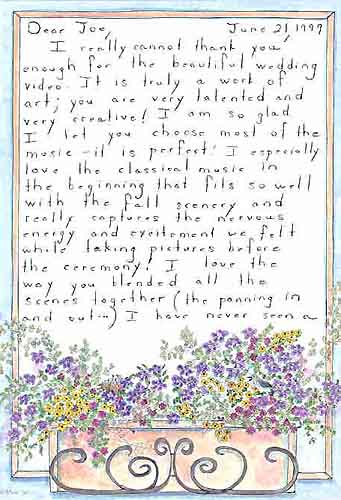 Dear Joe, June 21 1999
I really cannot thank you
enough for the beautiful wedding
video. It is truly a work of
art; you are very talented and
very creative! I am so glad
I let you choose most of the
music - it is perfect! I especially
love the classical music in
the beginning that fits so well
with the fall scenery and
really captures the nervous
energy and excitement we felt
while taking pictures before
the ceremony! I love the
way you blended all the
scenes together (the panning in
and out...) I have never seen a